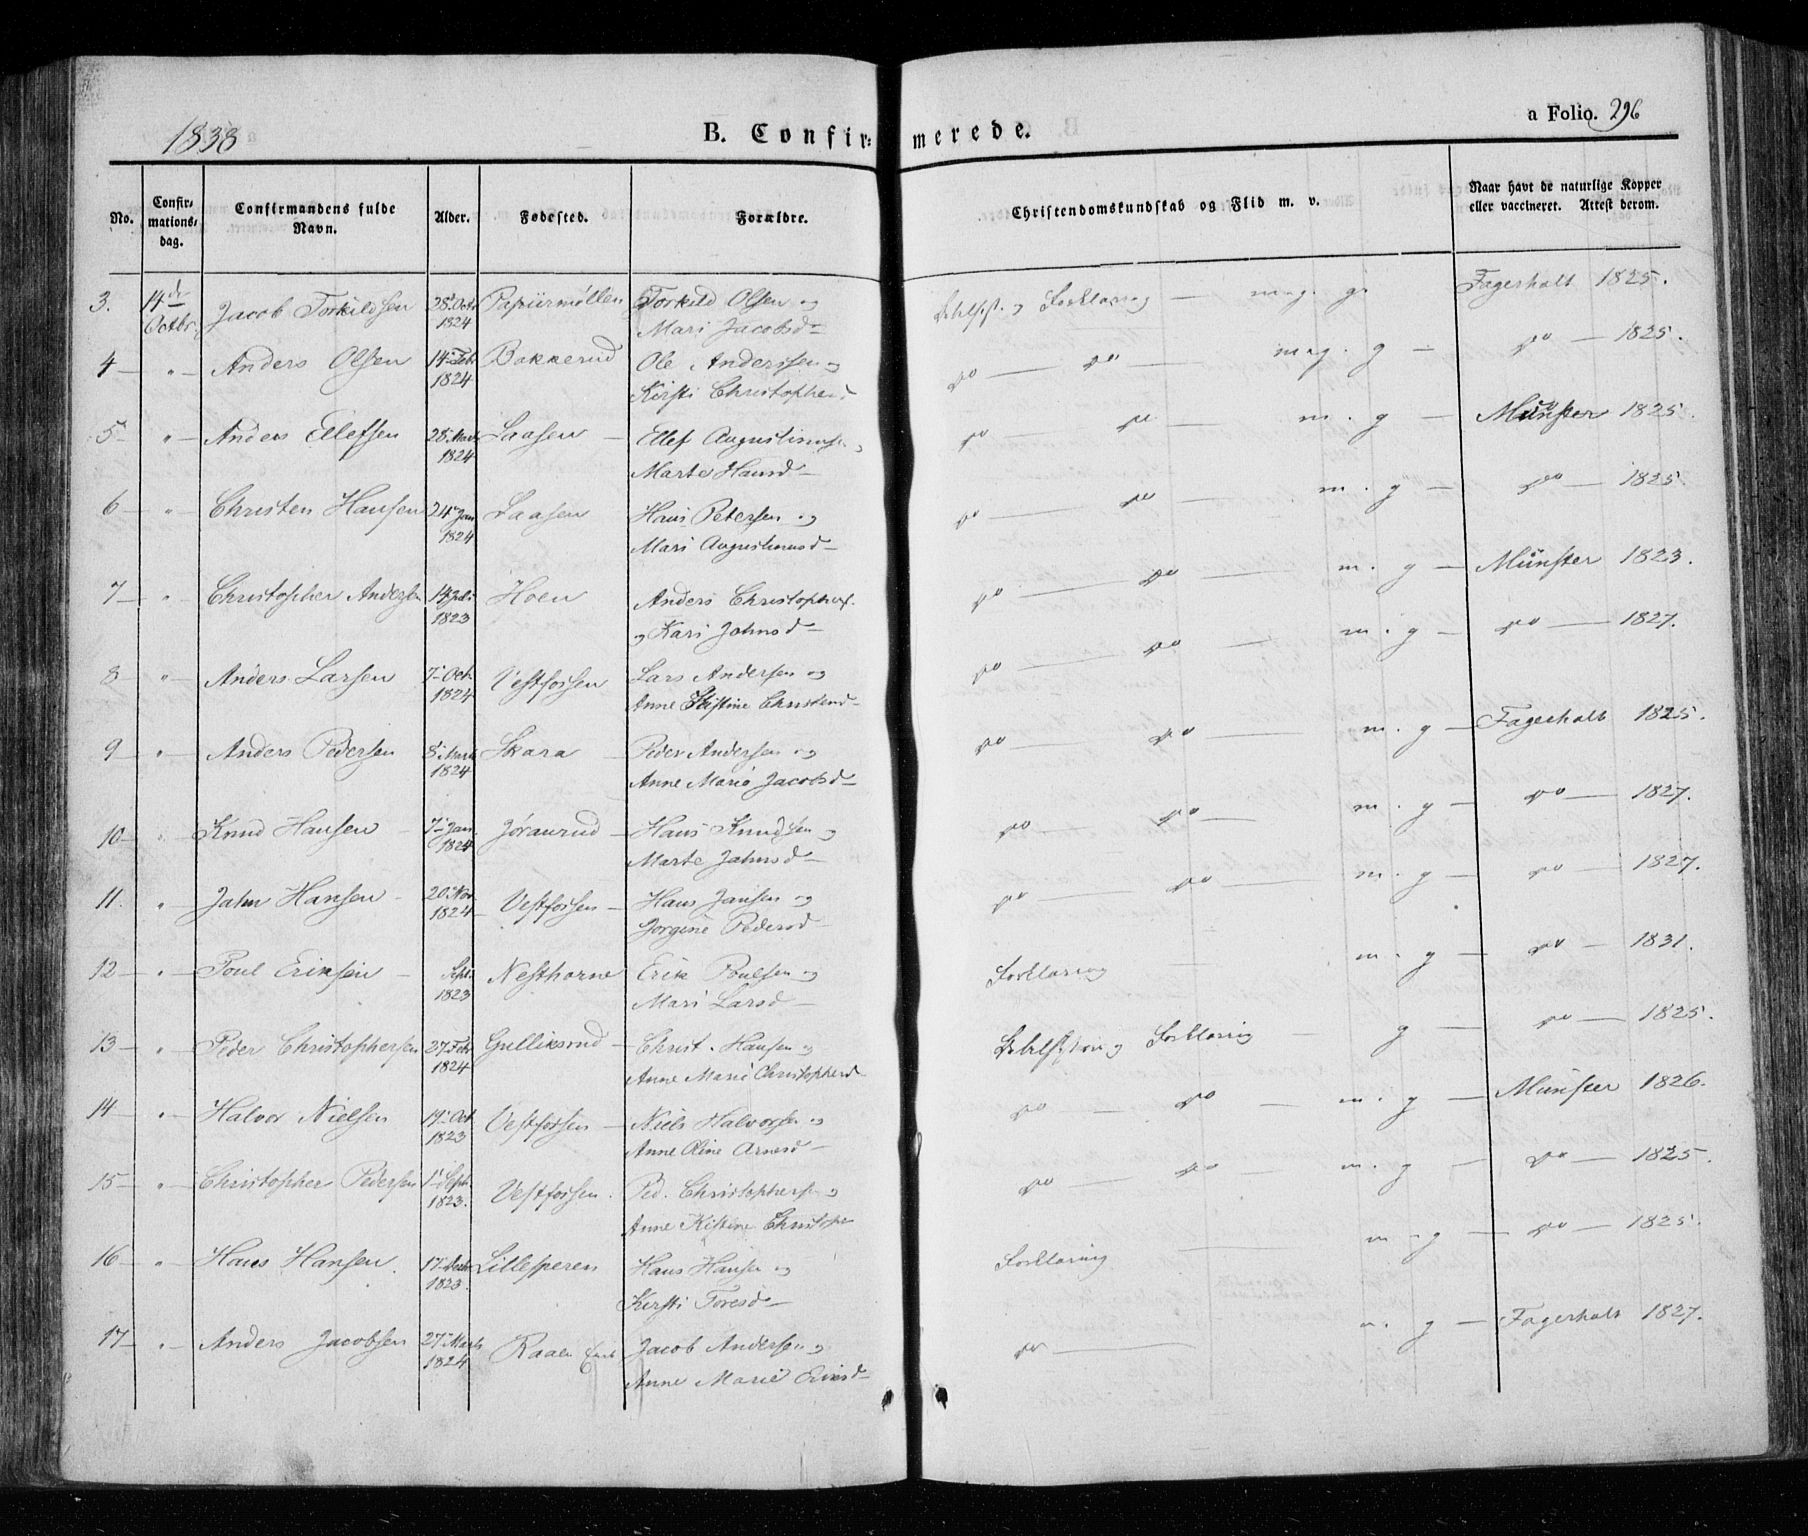 1838
B. Confirmerede.
a Folio. 296
No. Confirmationsdag. Confirmandens fulde Navn. Alder. Fødested. Forældre. Christendomskundskab og Flid m. v. Naar havt de naturlige Kopper eller vaccineret. Attest derom.
3. 14de Octbr. Jacob Torkildsen 28 Octr 1824 Papiirmøllen Torkild Olsen og Forklaring — mag. g. Fagerholt 1825.
Mari Jacobsd—
4 — " — Anders Olsen 14 Febr 1824 Bakkerud Ole Anderssen og do — do — mag. g — do — 1825.
Kirsti Christophersd
5 — " — Anders Ellefsen 28 Mar 1824 Laasen — Ellef Augustinuss. og do — do — m. g — Münster 1825.
Marte Hansd—
6 — " — Christen Hansen 24 Jan 1824 Laasen Hans Petersen og do — do — m. g — do — 1825.
Mari Augustinusd—
7 — " Christopher Andersen 14 Juli 1823 Hoen Anders Christophers. do — do — m. g — Münster 1823.
og Kari Johnsd—
8 " — Anders Larsen 7 Oct. 1824 Vestfossen Lars Andersen og do — do — m. g — do — 1827.
Anne Kistine Christensd—
9 " — Anders Pedersen 8 Marts 1824 Skara — Peder Andersen og do — do — m. g — Fagerholt 1825.
Anne Marie Jacobsd—
10 " — Knud Hansen — 7 Jan. 1824 Jøranrud — Hans Knudsen og do — do — m. g — do — 1827.
Marte Johnsd—
11. " John Hansen — 20 Nov 1824 — Vestfossen — Hans Jansen og do — do — m. g — do — 1827.
Jorgine Pedersd—
12 — " — Poul Eriksen — Sept 1823 Nesthorne Erik Poulsen og Forklaring — m. g — do — 1831.
Mari Larsd—
13 — " — Peder Christophersen 27 Febr 1824 Gulliksrud — Christ. Hansen og Forklaring — g — do — 1825.
Anne Marie Christophersd—
14 — " — Halvor Nielsen 19 Oct 1823 Vestfossen — Niels Halvorsen og do — do — m. g — Münster 1826.
Anne Oline Arnesd—
15 — " Christopher Pedersen 1 Sept. 1823. Vestfossen. Ped. Christophers. og do — do — m. g — do — 1825.
Anne Kistine Christophe
16 — " — Hans Hansen. 17 Decbr 1823. Lillesperen Hans Hansen og Forklaring — m. g — do — 1825.
Kirsti Toresd—
17 — " — Anders Jacobsen 27 Marts 1824 Raaen Jacob Andersen og do — m. g — Fagerholt 1827.
Anne Marie Eriksd—